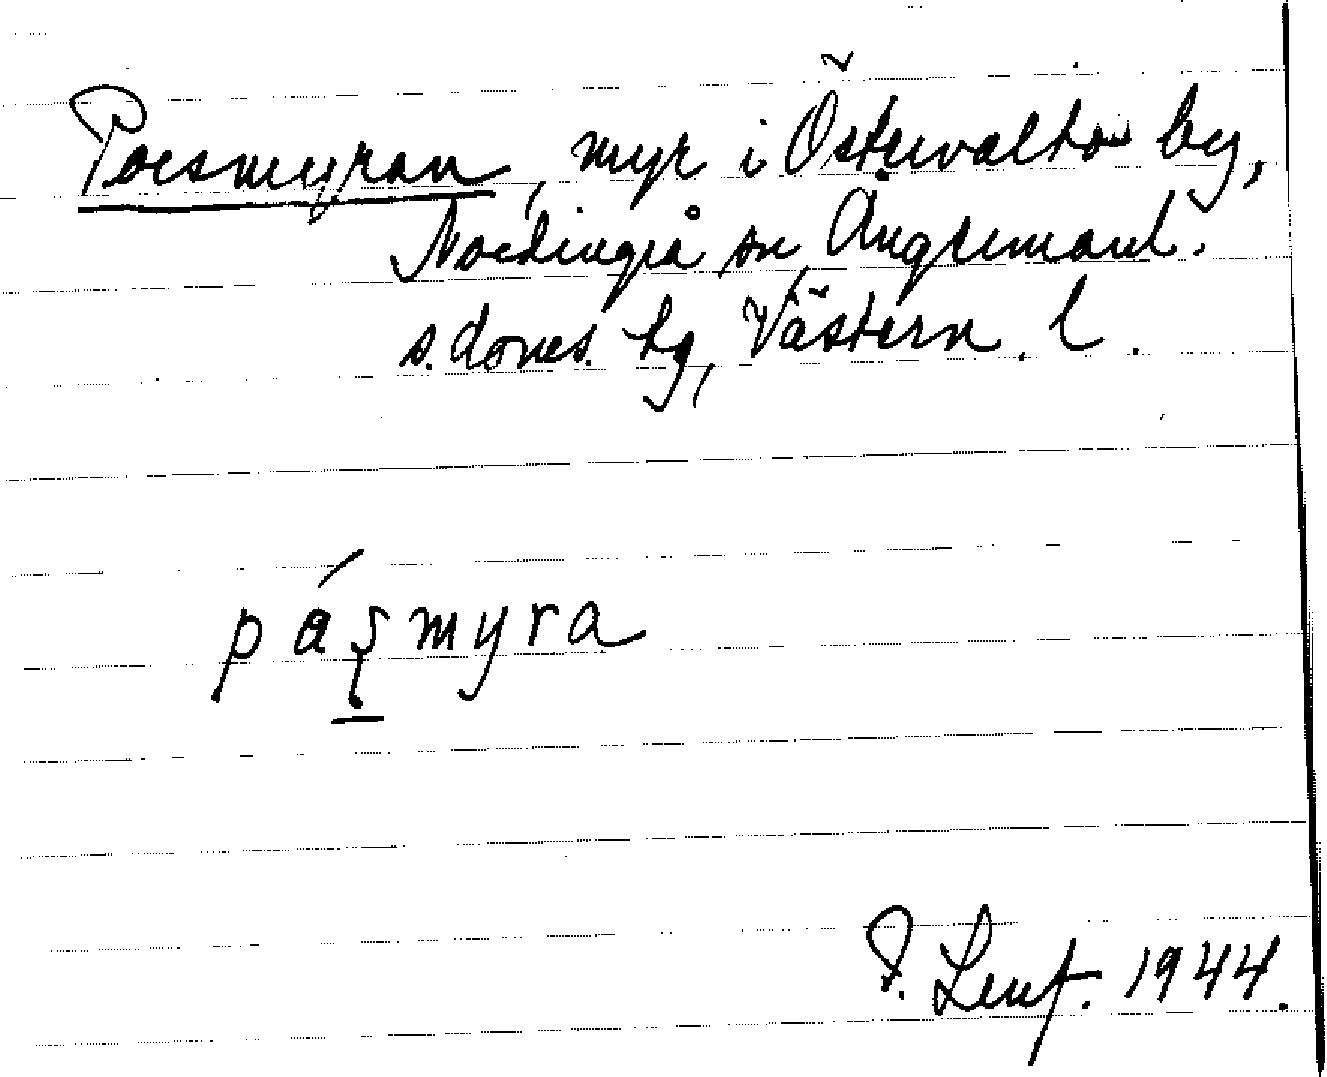 Porsmyran, myr i Östervalto by,
Nordingrå sn, Ångermanl.
s. domes. hg, Västern. l.
påşmyra
F. Lenf. 1944.